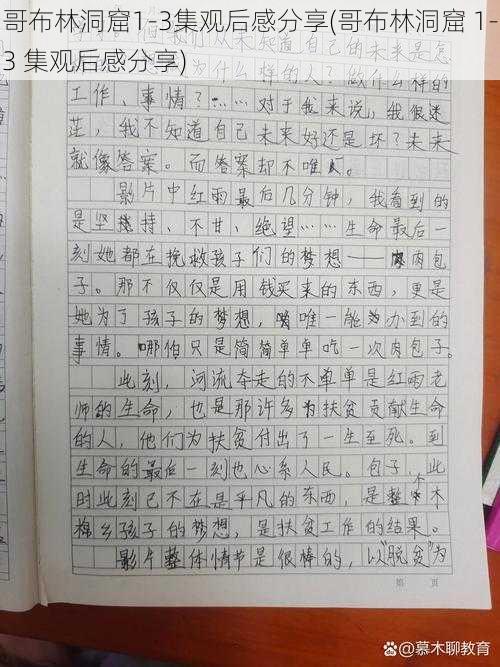 哥布林洞窟1-3集观后感分享(哥布林洞窟 1-
3 集观后感分享)
来知道自己的未来是怎
什么样的人？做什么样的
工作、事情？……对于我来说，我很迷
茫，我不知道自己未来好还是坏？未来
就像答案。而答案却不唯一。
影片中红雨最后几分钟，我看到的
是坚持、不甘、绝望……生命最后一
刻她都在挽救孩子们的梦想——肉包
子。那不仅仅是用钱买来的东西，更是
她为了孩子的梦想，唯一能为办到的
事情。哪怕只是简简单单吃一次肉包子。
此刻，河流夺走的不单单是红雨老
师的生命，也是那许多为扶贫贡献生命
的人，他们为扶贫付出了一生至死。到
生命的最后一刻也心系人民。包子，此
时此刻已不在是平凡的东西，是整个木
棉乡孩子的梦想，是扶贫工作的结果。
影片整体情节是很棒的，以“脱贫”为
第 页
@慕木聊教育